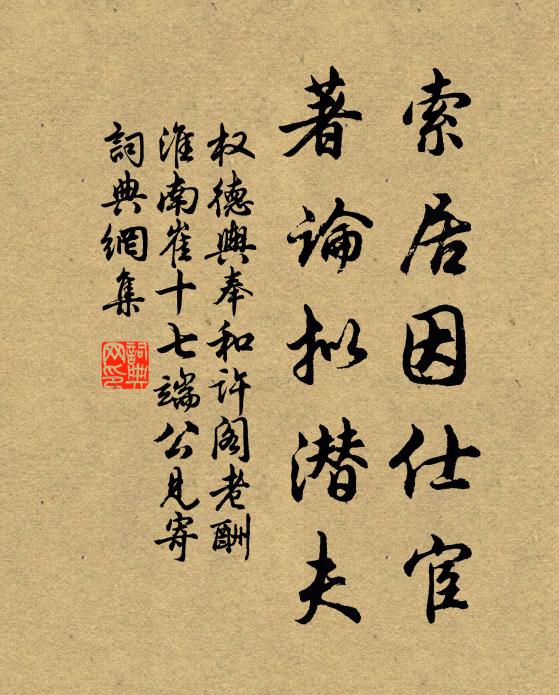 索居因仕宦
著論拟潜夫
权德輿奉和许阁老酬
淮南崔十七端公見寄
詞典網集
詞典
网印